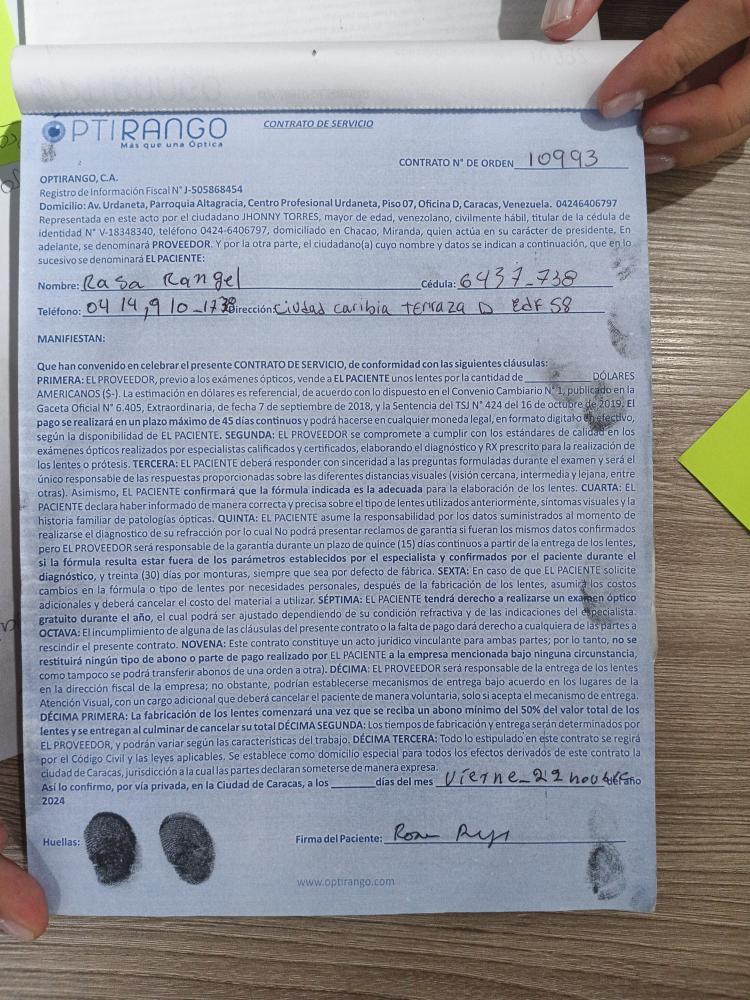 OPTIRANGO
Más que una Óptica
CONTRATO DE SERVICIO
CONTRATO N° DE ORDEN 10993
OPTIRANGO, C.A.
Registro de Información Fiscal N° J-505868454
Domicilio: Av. Urdaneta, Parroquia Altagracia, Centro Profesional Urdaneta, Piso 07, Oficina D, Caracas, Venezuela. 04246406797
Representada en este acto por el ciudadano JHONNY TORRES, mayor de edad, venezolano, civilmente hábil, titular de la cédula de
identidad N° V-18348340, teléfono 0424-6406797, domiciliado en Chacao, Miranda, quien actúa en su carácter de presidente. En
adelante, se denominará PROVEEDOR. Y por la otra parte, el ciudadano(a) cuyo nombre y datos se indican a continuación, que en lo
sucesivo se denominará EL PACIENTE:
Nombre: Rasa Rangel Cédula: 6437-738
Teléfono: 0414,910-1738 Dirección: Ciudad caribia terraza D EdF 58
MANIFIESTAN:
Que han convenido en celebrar el presente CONTRATO DE SERVICIO, de conformidad con las siguientes cláusulas:
PRIMERA: EL PROVEEDOR, previo a los exámenes ópticos, vende a EL PACIENTE unos lentes por la cantidad de ____________ DÓLARES
AMERICANOS ($-). La estimación en dólares es referencial, de acuerdo con lo dispuesto en el Convenio Cambiario N° 1, publicado en la
Gaceta Oficial N° 6.405, Extraordinaria, de fecha 7 de septiembre de 2018, y la Sentencia del TSJ N° 424 del 16 de octubre de 2019. El
pago se realizará en un plazo máximo de 45 días continuos y podrá hacerse en cualquier moneda legal, en formato digital o en efectivo,
según la disponibilidad de EL PACIENTE. SEGUNDA: EL PROVEEDOR se compromete a cumplir con los estándares de calidad en los
exámenes ópticos realizados por especialistas calificados y certificados, elaborando el diagnóstico y RX prescrito para la realización de
los lentes o prótesis. TERCERA: EL PACIENTE deberá responder con sinceridad a las preguntas formuladas durante el examen y será el
único responsable de las respuestas proporcionadas sobre las diferentes distancias visuales (visión cercana, intermedia y lejana, entre
otras). Asimismo, EL PACIENTE confirmará que la fórmula indicada es la adecuada para la elaboración de los lentes. CUARTA: EL
PACIENTE declara haber informado de manera correcta y precisa sobre el tipo de lentes utilizados anteriormente, síntomas visuales y la
historia familiar de patologías ópticas. QUINTA: EL PACIENTE asume la responsabilidad por los datos suministrados al momento de
realizarse el diagnostico de su refracción por lo cual No podrá presentar reclamos de garantía si fueran los mismos datos confirmados
pero EL PROVEEDOR será responsable de la garantía durante un plazo de quince (15) días continuos a partir de la entrega de los lentes,
si la fórmula resulta estar fuera de los parámetros establecidos por el especialista y confirmados por el paciente durante el
diagnóstico, y treinta (30) días por monturas, siempre que sea por defecto de fábrica. SEXTA: En caso de que EL PACIENTE solicite
cambios en la fórmula o tipo de lentes por necesidades personales, después de la fabricación de los lentes, asumirá los costos
adicionales y deberá cancelar el costo del material a utilizar. SÉPTIMA: EL PACIENTE tendrá derecho a realizarse un examen óptico
gratuito durante el año, el cual podrá ser ajustado dependiendo de su condición refractiva y de las indicaciones del especialista.
OCTAVA: El incumplimiento de alguna de las cláusulas del presente contrato o la falta de pago dará derecho a cualquiera de las partes a
rescindir el presente contrato. NOVENA: Este contrato constituye un acto jurídico vinculante para ambas partes; por lo tanto, no se
restituirá ningún tipo de abono o parte de pago realizado por EL PACIENTE a la empresa mencionada bajo ninguna circunstancia,
como tampoco se podrá transferir abonos de una orden a otra). DÉCIMA: EL PROVEEDOR será responsable de la entrega de los lentes
en la dirección fiscal de la empresa; no obstante, podrían establecerse mecanismos de entrega bajo acuerdo en los lugares de la
Atención Visual, con un cargo adicional que deberá cancelar el paciente de manera voluntaria, solo si acepta el mecanismo de entrega.
DÉCIMA PRIMERA: La fabricación de los lentes comenzará una vez que se reciba un abono mínimo del 50% del valor total de los
lentes y se entregan al culminar de cancelar su total DÉCIMA SEGUNDA: Los tiempos de fabricación y entrega serán determinados por
EL PROVEEDOR, y podrán variar según las características del trabajo. DÉCIMA TERCERA: Todo lo estipulado en este contrato se regirá
por el Código Civil y las leyes aplicables. Se establece como domicilio especial para todos los efectos derivados de este contrato la
ciudad de Caracas, jurisdicción a la cual las partes declaran someterse de manera expresa.
Así lo confirmo, por vía privada, en la Ciudad de Caracas, a los _______ días del mes Vierne_22 del año
2024
Huellas: Firma del Paciente:
www.optirango.com